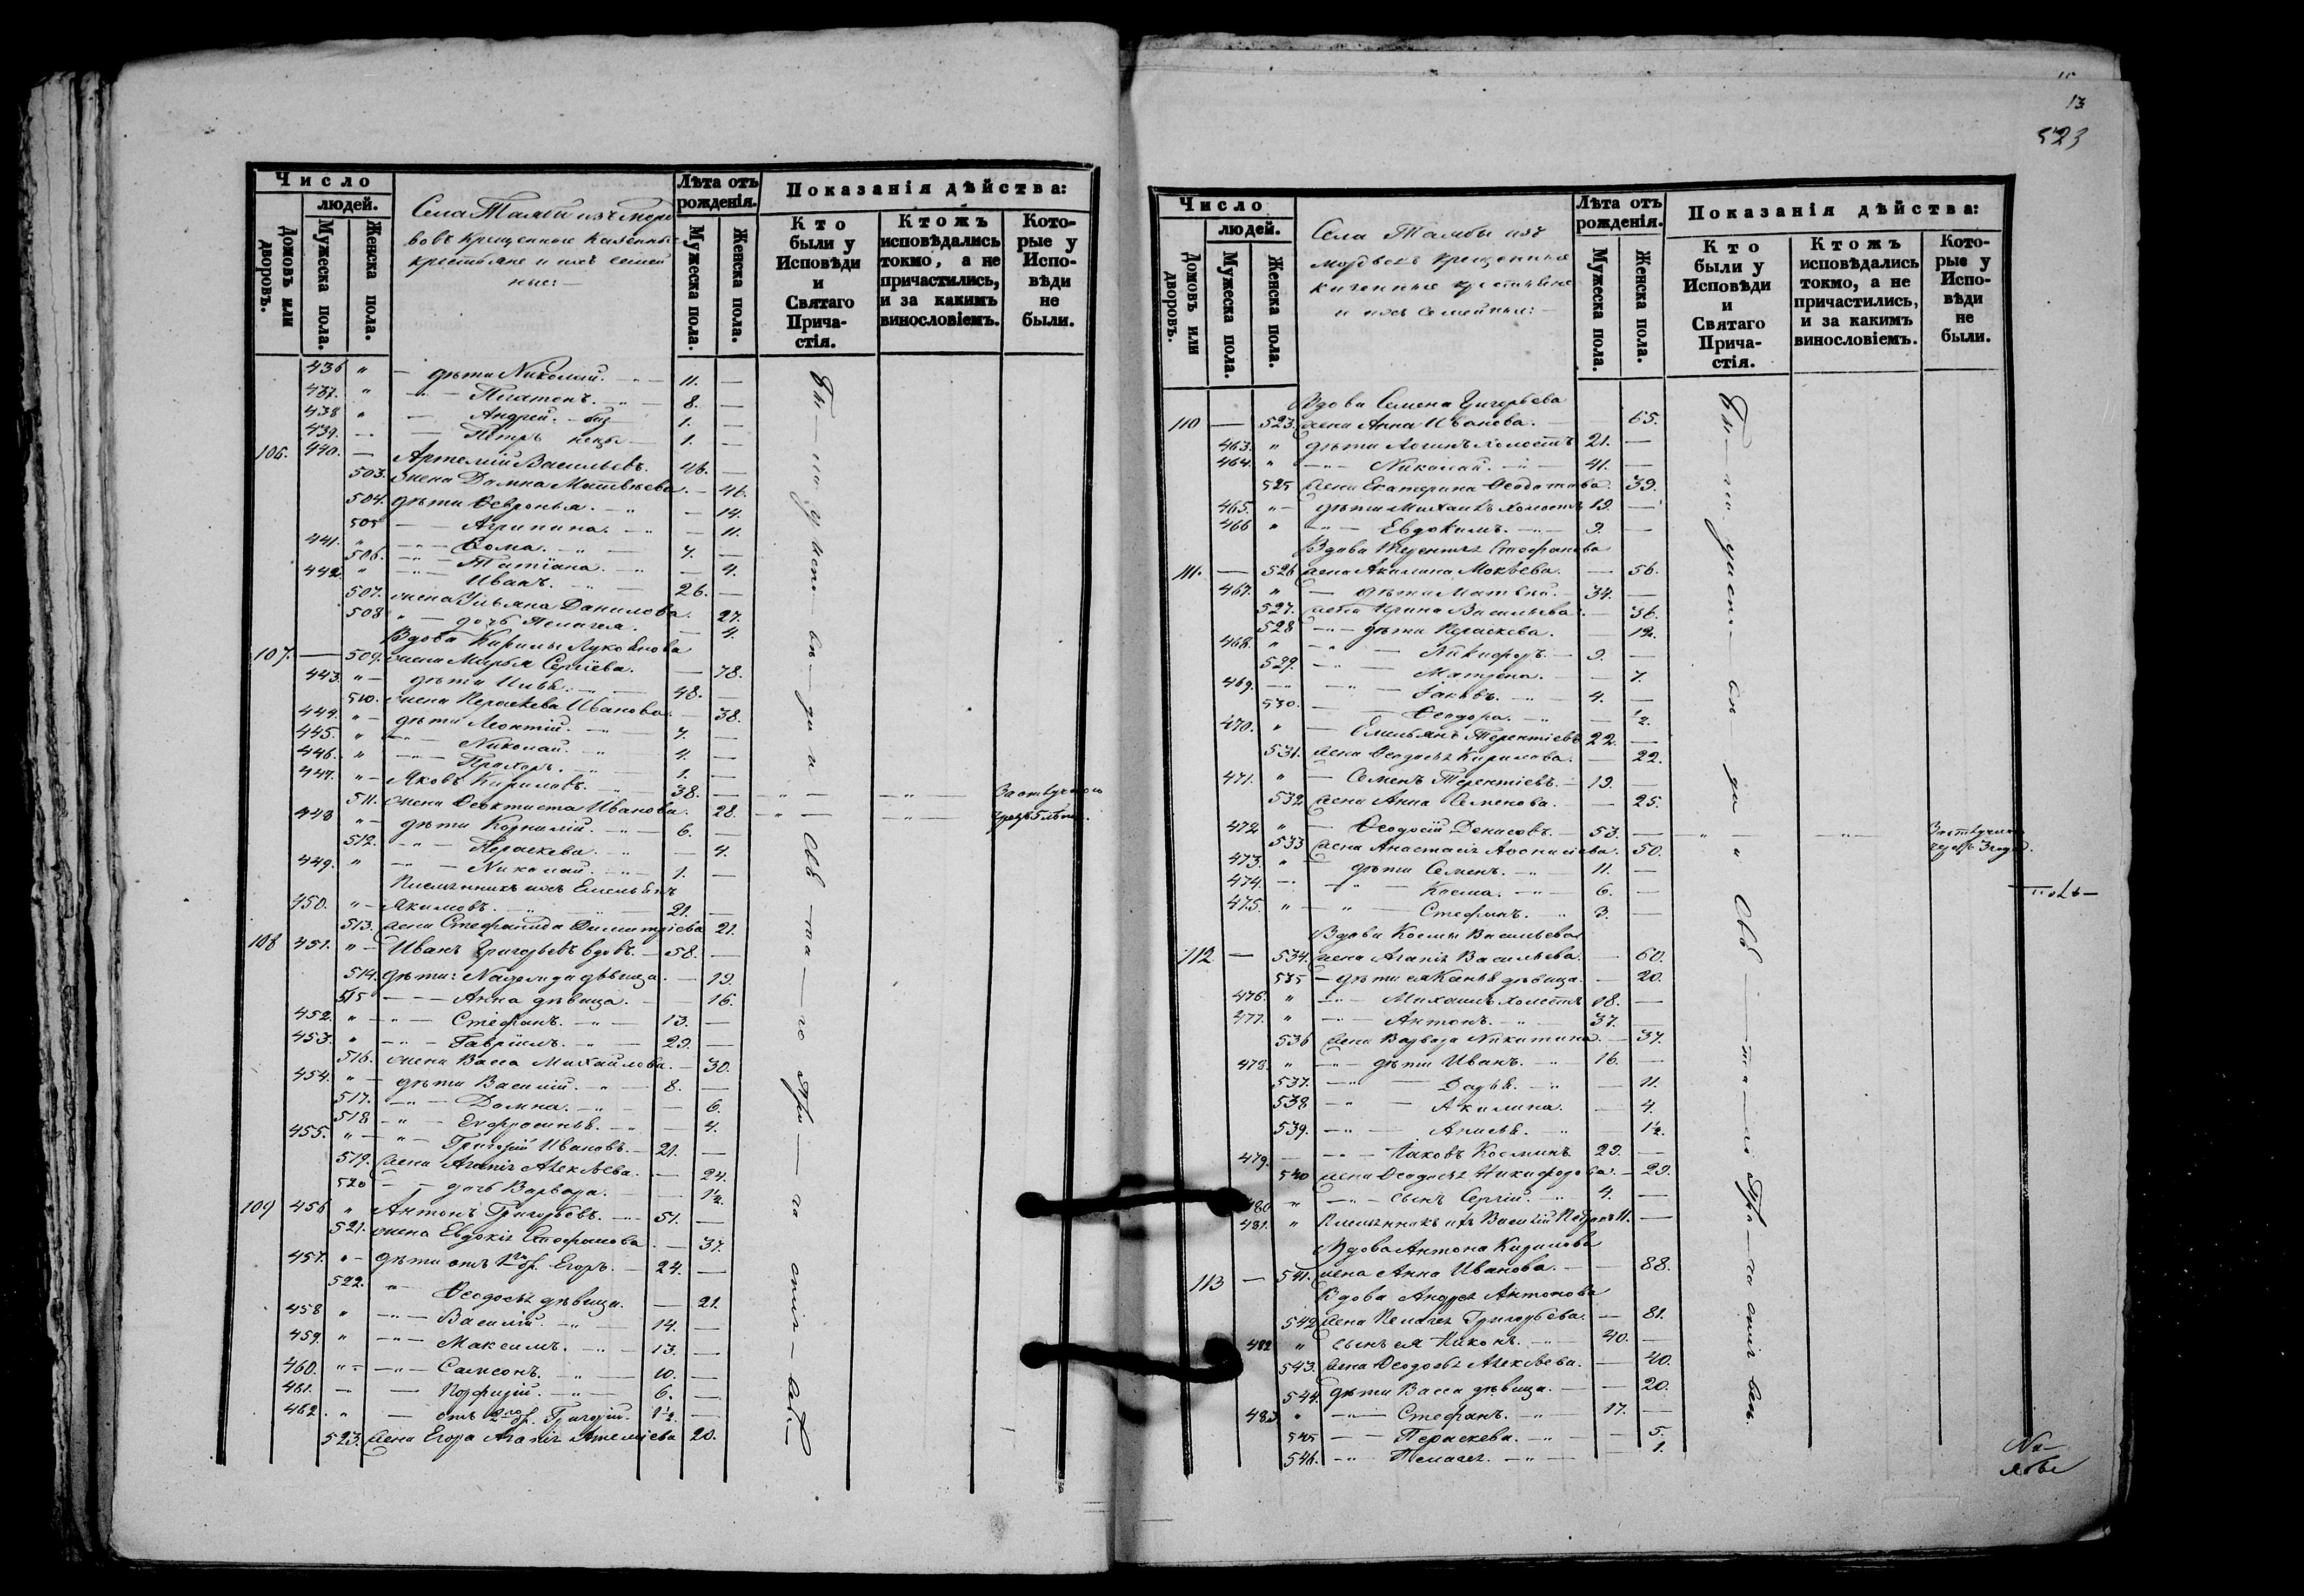 Число
людей.
Домовъ или дворовъ.
Мужеска пола.
Женска пола.
Села Талбы изъ Морд
вовъ крещенные казенные
крестьяне и ихъ семей
ные:
Лѣта отъ рожденія.
Мужеска пола.
Женска пола.
Показанія дѣйства:
Кто были у Исповѣди и Святаго Причастія.
Ктожъ исповѣдались токмо, а не причастились, и за какимъ винословіемъ.
Которые у Исповѣди не были.
436 " — дѣти Николай. 11. —
437. " — Платонъ. 8. —
438 " — Андрей. 1. —
439. — Петръ 1. —
106. 440. — Артемій Васильевъ. 46. —
503. жена Домна Матвѣева. — 46.
504. дѣти Февронья. — 14.
505 — Агрипина. — 11.
441. " — Ѳома. 7. —
506. — Татіана. — 4.
442. " — Иванъ. 26. —
507. жена Ульяна Данилова. — 27.
508 " — дочь Пелагея. — 4.
Вдова Кирилы Лукоянова
107. — 509. жена Марья Сергѣева. — 78.
443. " — дѣти Илья. 48. —
510. жена Пераскева Иванова. — 38.
444. " — дѣти Леонтій. 7. —
445. " — Николай. 4. —
446. " — Прохоръ. 1. —
447. " — Яковъ Кириловъ. 38. —
511. жена Ѳеоктиста Иванова. 28.
448 " — дѣти Корнилій. 6. —
512. — Пераскева. — 4.
449. " — Николай. 1. —
Племянникъ ихъ Емельянъ
450. " — Якимовъ. 21. —
513. жена Стефанида Димитріева 21.
108 451. " — Иванъ Григорьевъ вдовъ. — 58. —
514. дѣти: Надежда дѣвица. — 19.
515 — Анна дѣвица. — 16.
452. " — Стефанъ. 13. —
453. " — Гавріилъ. 29. —
516. жена Васса Михайлова. — 30.
454. " — дѣти Василій. 8. —
517. — Домна. — 6.
518 — Евфросинья. — 4.
455. " — Григорій Ивановъ. — 21. —
519. жена Агапія Алексѣева. — 24.
520 — дочь Варвара. — 1/2.
109 456 " Антонъ Григорьевъ. 51. —
521. жена Евдокія Стефанова — 37.
457. " — дѣти отъ 1го бр. Егоръ. — 24. —
522. " — Ѳеодосья дѣвица. — 21.
458 " — Василій. 14. —
459. " — Максимъ. 13. —
460. " — Самсонъ. 10. —
461. — Порфирій. 6. —
462. " — отъ 2го бр. Григорій. 1 1/2. —
523. жена Егора Агапія 20.
Бы — ли у испо — вѣ — ди и Свя — та — го При — ча — стія — всѣ
За отлучкою
чрезъ 5 лѣтъ.
13
523
Число
людей.
Домовъ или дворовъ.
Мужеска пола.
Женска пола.
Села Талбы изъ
мордвовъ крещенные
казенные крестьяне
и ихъ семейные: —
Лѣта отъ рожденія.
Мужеска пола.
Женска пола.
Показанія дѣйства:
Кто были у Исповѣди и Святаго Причастія.
Ктожъ исповѣдались токмо, а не причастились, и за какимъ винословіемъ.
Которые у Исповѣди не были.
Вдова Семена Григорьева
110 — 523. жена Анна Иванова. — 65.
463. " дѣти Логинъ холостъ 21. —
464. " — Николай. 41. —
525 жена Екатерина Ѳеодотова. 39.
465. " — дѣти Михаилъ холостъ 19. —
466 " — Евдокимъ. 9. —
Вдова Терентія Стефанова
111. — 526 жена Акилина Мокѣева. — 56.
467. " — дѣти Матвей. — 34. —
527. жена Ирина Васильева. — 36.
528 — дѣти Пераскева. — 12.
468. " — Никифоръ. 9. —
529. — Матрена. — 7.
469. — Іаковъ. 4. —
530. — Ѳеодора. — 1/2.
470. " — Емельянъ Терентіевъ 22. —
531. жена Ѳеодосья Кирилова. — 22.
471. " — Семенъ Терентіевъ. 19. —
532. жена Анна Семенова. — 25.
472 " — Ѳеодосій Денисовъ. — 53. —
533 жена Анастасія Аѳонасіева. 50.
473. " — дѣти Семенъ. 11. —
474. — Косма. 6. —
475. " — Стефанъ. 3. —
Вдова Космы Васильева
112 — 534. жена Агапія Васильева. — 60.
535 — дѣти ея дѣвица. — 20.
476. " — Михаилъ холостъ 18. —
477. " — Антонъ. 37. —
536 жена Варвара Никитина. — 37.
478. " — дѣти Иванъ. 16. —
537. — Дарья. — 11.
538 — Акилина. — 4.
539. — Анисья. — 1 1/2.
479. — Іаковъ Косминъ 29. —
540 жена Ѳеодосья Никифорова. — 29.
480 " — сынъ Сергій. 4. —
481. " Племянникъ ихъ Василій Петровъ 11. —
Вдова Антона Кирилова
113 — 541. жена Анна Иванова. — 88.
Вдова Андрея Антонова
542 жена Пелагея Григорьева. — 81.
482 " сынъ ея Никонъ. 40. —
543. жена Ѳеодосья Алексѣева. — 40.
544. дѣти Васса дѣвица. — 20.
483. " — Стефанъ. 17. —
545 — Пераскева. — 5.
546. — Пелагея. — 1.
Бы — ли у испо — вѣ — ди и Свя — та — го При — ча — стія всѣ.
За отлучкою
чрезъ 3 года.